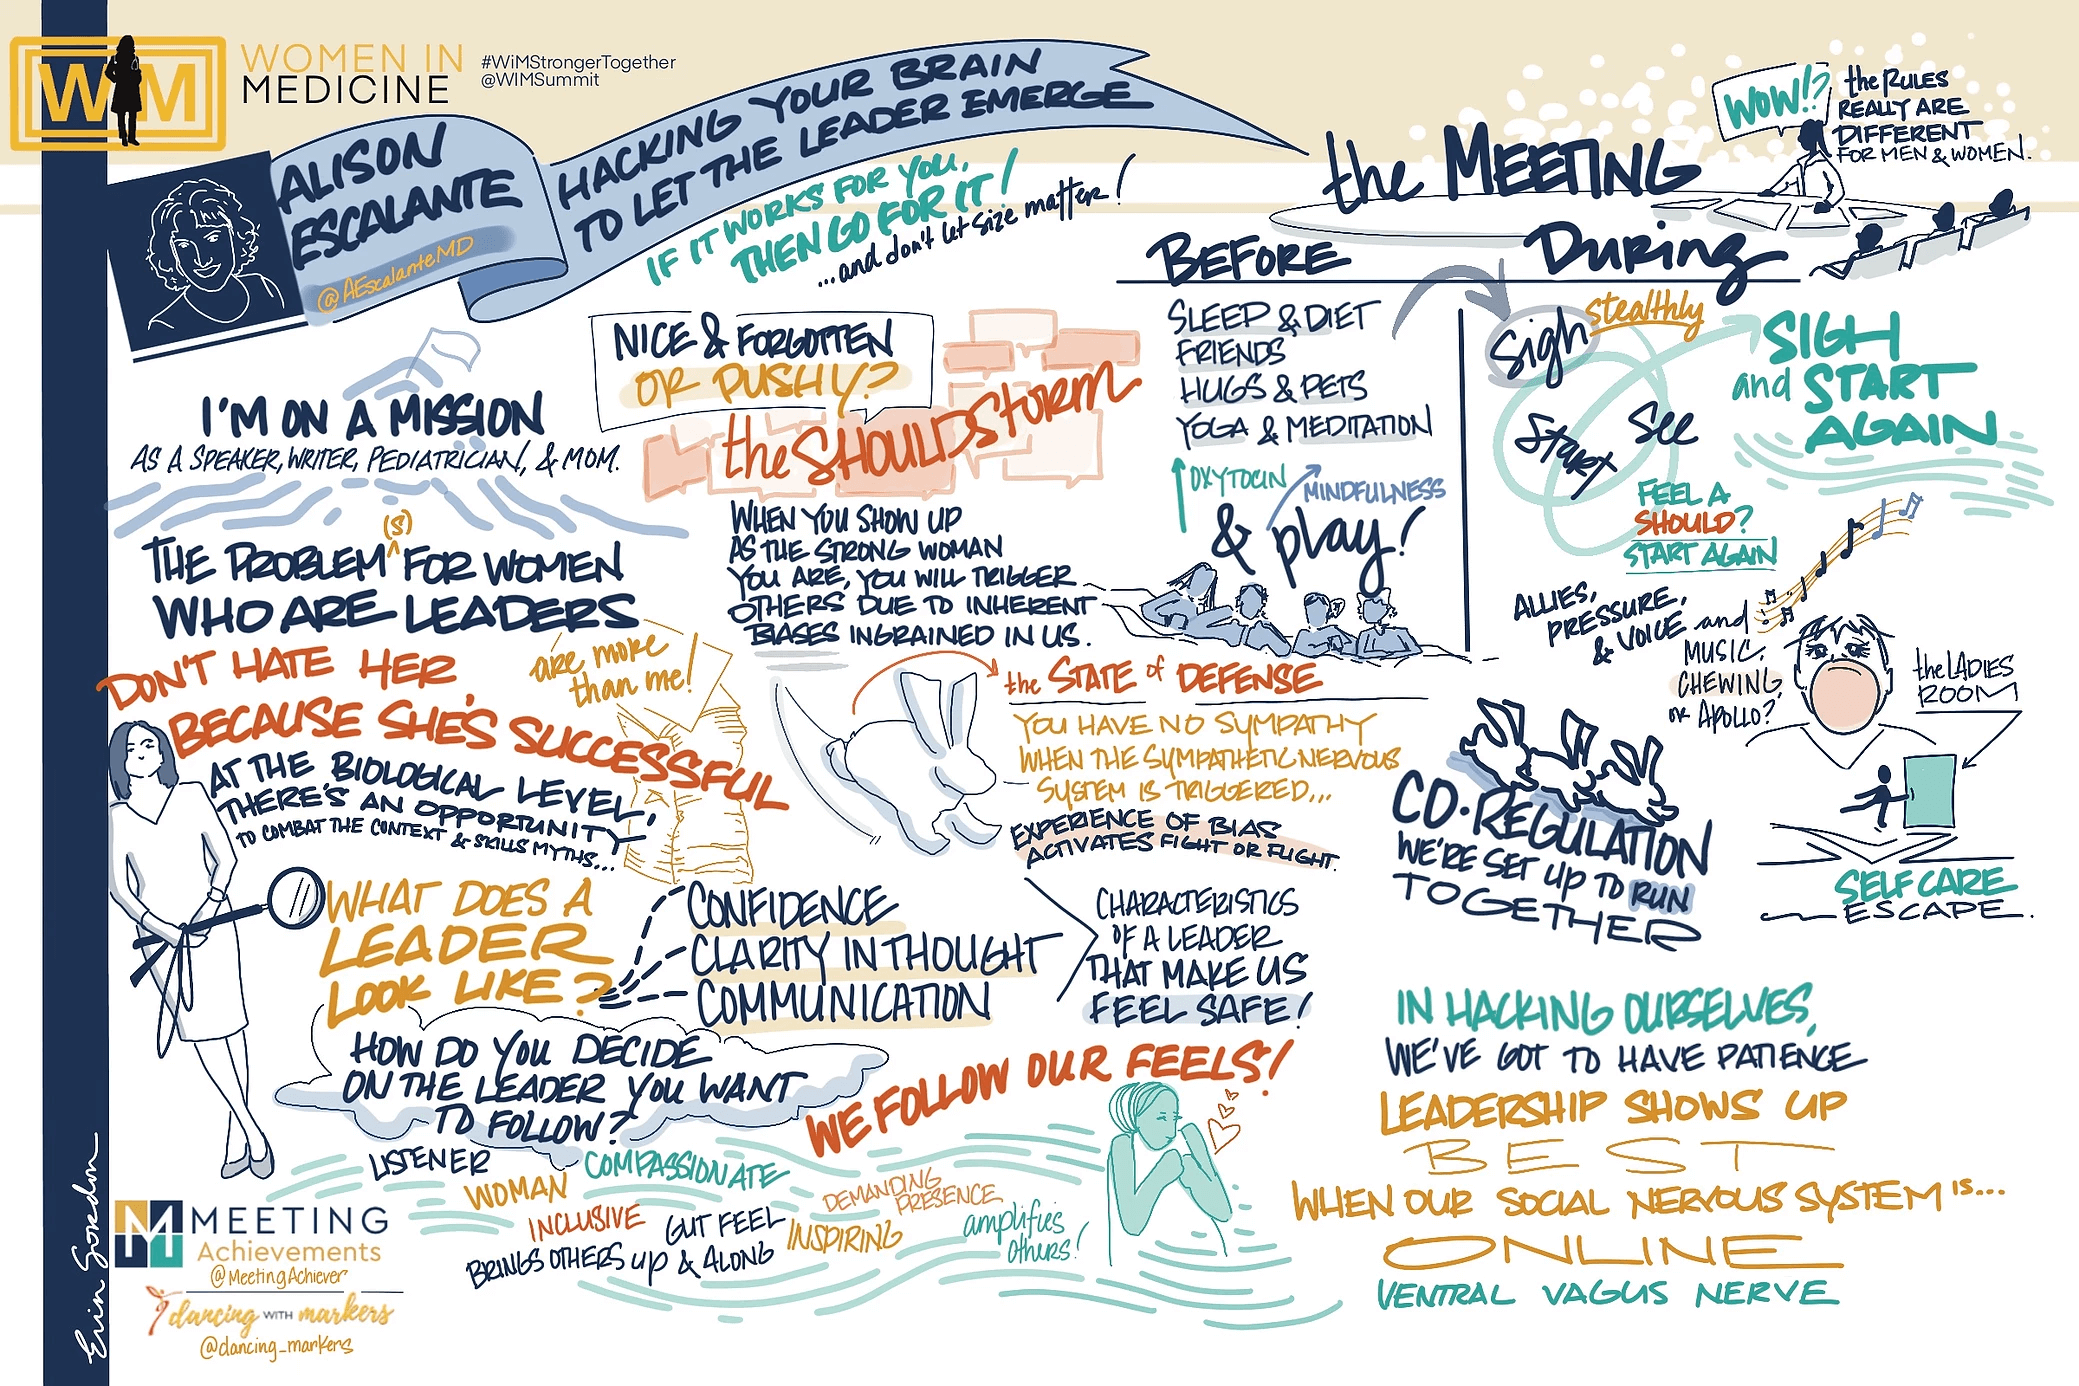 WIM
WOMEN IN
MEDICINE
#WiMStrongerTogether
@WIMSummit
ALISON
ESCALANTE
@AEscalanteMD
HACKING YOUR BRAIN
TO LET THE LEADER EMERGE
IF IT WORKS FOR YOU,
THEN GO FOR IT!
...and don't let size matter!
I'M ON A MISSION
AS A SPEAKER, WRITER, PEDIATRICIAN, & MOM.
THE PROBLEM (S) FOR WOMEN
WHO ARE LEADERS
are more
than me!
DON'T HATE HER,
BECAUSE SHE'S SUCCESSFUL
AT THE BIOLOGICAL LEVEL,
THERE'S AN OPPORTUNITY
TO COMBAT THE CONTEXT & SKILLS MYTHS...
NICE & FORGOTTEN
OR PUSHY?
the SHOULDSTORM
WHEN YOU SHOW UP
AS THE STRONG WOMAN
YOU ARE, YOU WILL TRIGGER
OTHERS DUE TO INHERENT
BIASES INGRAINED IN US.
the STATE of DEFENSE
YOU HAVE NO SYMPATHY
WHEN THE SYMPATHETIC NERVOUS
SYSTEM IS TRIGGERED...
EXPERIENCE OF BIAS
ACTIVATES FIGHT OR FLIGHT.
WHAT DOES A
LEADER
LOOK LIKE?
CONFIDENCE
CLARITY IN THOUGHT
COMMUNICATION
CHARACTERISTICS
OF A LEADER
THAT MAKE US
FEEL SAFE!
HOW DO YOU DECIDE
ON THE LEADER YOU WANT
TO FOLLOW?
WE FOLLOW OUR FEELS!
LISTENER
COMPASSIONATE
WOMAN
DEMANDING
PRESENCE
INCLUSIVE
GUT FEEL
INSPIRING
amplifies
others!
BRINGS OTHERS UP & ALONG
the MEETING
WOW!?
the RULES
REALLY ARE
DIFFERENT
FOR MEN & WOMEN.
BEFORE
SLEEP & DIET
FRIENDS
HUGS & PETS
YOGA & MEDITATION
OXYTOCIN
MINDFULNESS
& play!
DURING
Sigh
stealthly
See
Start
SIGH
and START
AGAIN
FEEL A
SHOULD?
START AGAIN
ALLIES,
PRESSURE,
& VOICE and
MUSIC,
CHEWING,
OR APOLLO?
the LADIES
ROOM
SELF CARE
ESCAPE.
CO-REGULATION
WE'RE SET UP TO RUN
TOGETHER
IN HACKING OURSELVES,
WE'VE GOT TO HAVE PATIENCE
LEADERSHIP SHOWS UP
BEST
WHEN OUR SOCIAL NERVOUS SYSTEM IS...
ONLINE
VENTRAL VAGUS NERVE
Erin Gordon
M
MEETING
Achievements
@MeetingAchiever
dancing WITH markers
@dancing_markers